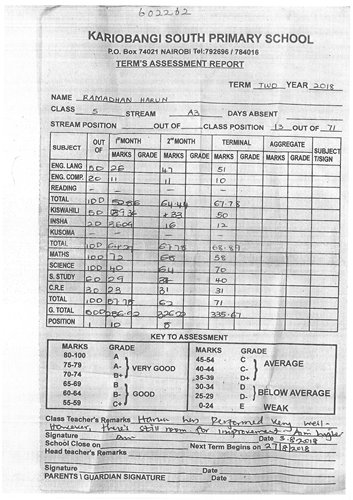 602262
KARIOBANGI SOUTH PRIMARY SCHOOL
P.O. Box 74021 NAIROBI Tel:792696 / 784016
TERM'S ASSESSMENT REPORT
TERM TWO YEAR 2018
NAME RAMADHAN HARUN
CLASS 5 STREAM A3 DAYS ABSENT
STREAM POSITION OUT OF CLASS POSITION 13 OUT OF 71
SUBJECT OUT OF 1st MONTH 2nd MONTH TERMINAL AGGREGATE SUBJECT T/SIGN
MARKS GRADE MARKS GRADE MARKS GRADE MARKS GRADE
ENG. LANG 50 28 47 51
ENG. COMP. 20 11 11 10
READING - - - -
TOTAL 100 64.44 67.78
KISWAHILI 50 33 50
INSHA 20 16 12
KUSOMA - - -
TOTAL 100 67.78 68.89
MATHS 100 72 58
SCIENCE 100 40 64 70
S. STUDY 60 29 40
C.R.E 30 23 31 31
TOTAL 100 57.78 62 71
G. TOTAL 500 335.67
POSITION 1 10 8
KEY TO ASSESSMENT
MARKS GRADE MARKS GRADE
80-100 A 45-54 C
75-79 A- VERY GOOD 40-44 C- AVERAGE
70-74 B+ 35-39 D+
65-69 B 30-34 D
60-64 B- GOOD 25-29 D- BELOW AVERAGE
55-59 C+ 0-24 E WEAK
Class Teacher's Remarks Harun has performed very well.
However, there's still room for improvement. Aim higher
Signature Date 3.8.2018
School Close on Next Term Begins on 27/8/2018
Head teacher's Remarks
Signature Date
PARENTS \ GUARDIAN SIGNATURE